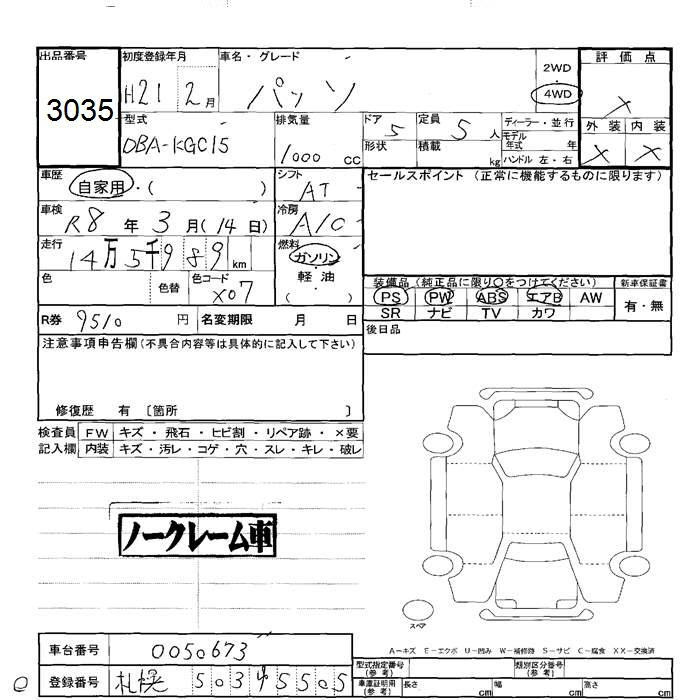 出品番号 初度登録年月 車名・グレード
3035
H21 2月 パッソ
2WD
・
4WD
評価点
X
外装 内装
X X
型式 排気量 ドア 定員 ディーラー・並行
DBA-KGC15 1000cc 5 5人
形状 積載 kg
モデル年式 年
ハンドル 左・右
車歴 シフト セールスポイント (正常に機能するものに限ります)
自家用・( ) AT
車検 冷房
R8年 3月(14日) A/C
走行 燃料
14万5千989km ガソリン
軽・油
( )
色 色替 色コード
X07
装備品(純正品に限り○をつけてください) 新車保証書
PS PW ABS エアB AW 有・無
SR ナビ TV カワ
R券 9510円 名変期限 月 日
後日品
注意事項申告欄(不具合内容等は具体的に記入して下さい)
修復歴 有 〔箇所 〕
検査員 FW キズ・飛石・ヒビ割・リペア跡・×要
記入欄 内装 キズ・汚レ・コゲ・穴・スレ・キレ・破レ
ノークレーム車
スペア
A－キズ E－エクボ U－凹み W－補修跡 S－サビ C－腐食 XX－交換済
車台番号 0050673
登録番号 札幌 503 5505
型式指定番号(参考) 類別区分番号(参考)
車庫証明用(参考) 長さ cm 幅 cm 高さ cm